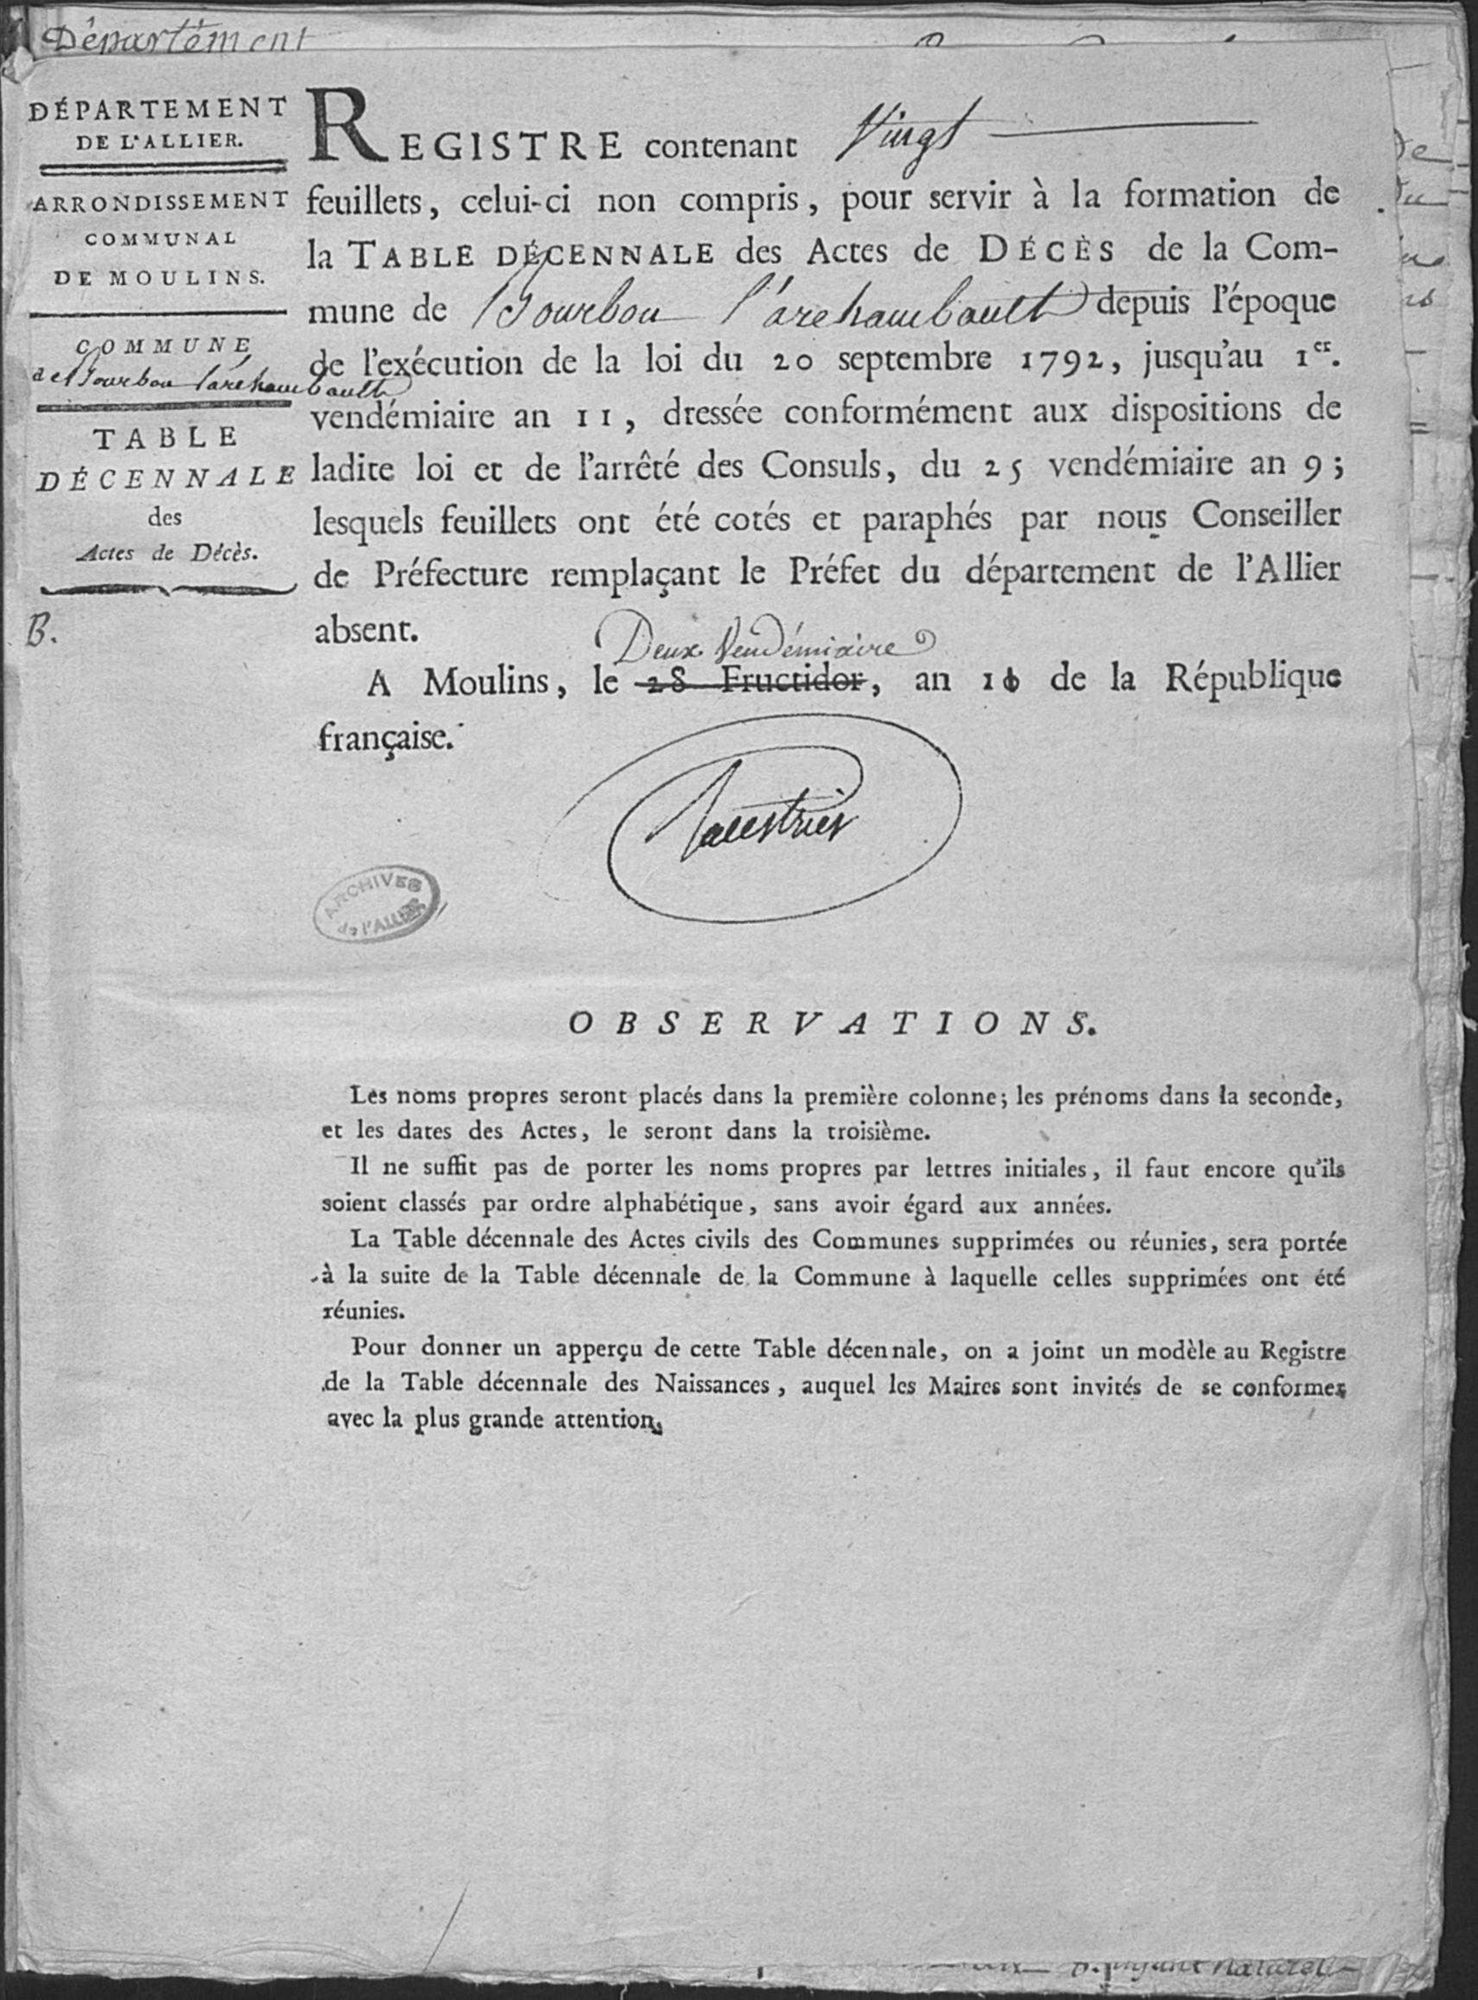 Département
DÉPARTEMENT
DE L'ALLIER.
ARRONDISSEMENT
COMMUNAL
DE MOULINS.
COMMUNE
de Bourbon l'archambault
TABLE
DÉCENNALE
des
Actes de Décès.
B.
REGISTRE contenant Vingt
feuillets, celui-ci non compris, pour servir à la formation de
la TABLE DÉCENNALE des Actes de DÉCÈS de la Com-
mune de Bourbon l'archambault depuis l'époque
de l'exécution de la loi du 20 septembre 1792, jusqu'au 1er.
vendémiaire an 11, dressée conformément aux dispositions de
ladite loi et de l'arrêté des Consuls, du 25 vendémiaire an 9;
lesquels feuillets ont été cotés et paraphés par nous Conseiller
de Préfecture remplaçant le Préfet du département de l'Allier
absent.
Deux Vendémiaire
A Moulins, le 28 Fructidor, an 11 de la République
française.
ARCHIVES
de l'ALLIER
OBSERVATIONS.
Les noms propres seront placés dans la première colonne; les prénoms dans la seconde,
et les dates des Actes, le seront dans la troisième.
Il ne suffit pas de porter les noms propres par lettres initiales, il faut encore qu'ils
soient classés par ordre alphabétique, sans avoir égard aux années.
La Table décennale des Actes civils des Communes supprimées ou réunies, sera portée
à la suite de la Table décennale de la Commune à laquelle celles supprimées ont été
réunies.
Pour donner un apperçu de cette Table décennale, on a joint un modèle au Registre
de la Table décennale des Naissances, auquel les Maires sont invités de se conformer
avec la plus grande attention.